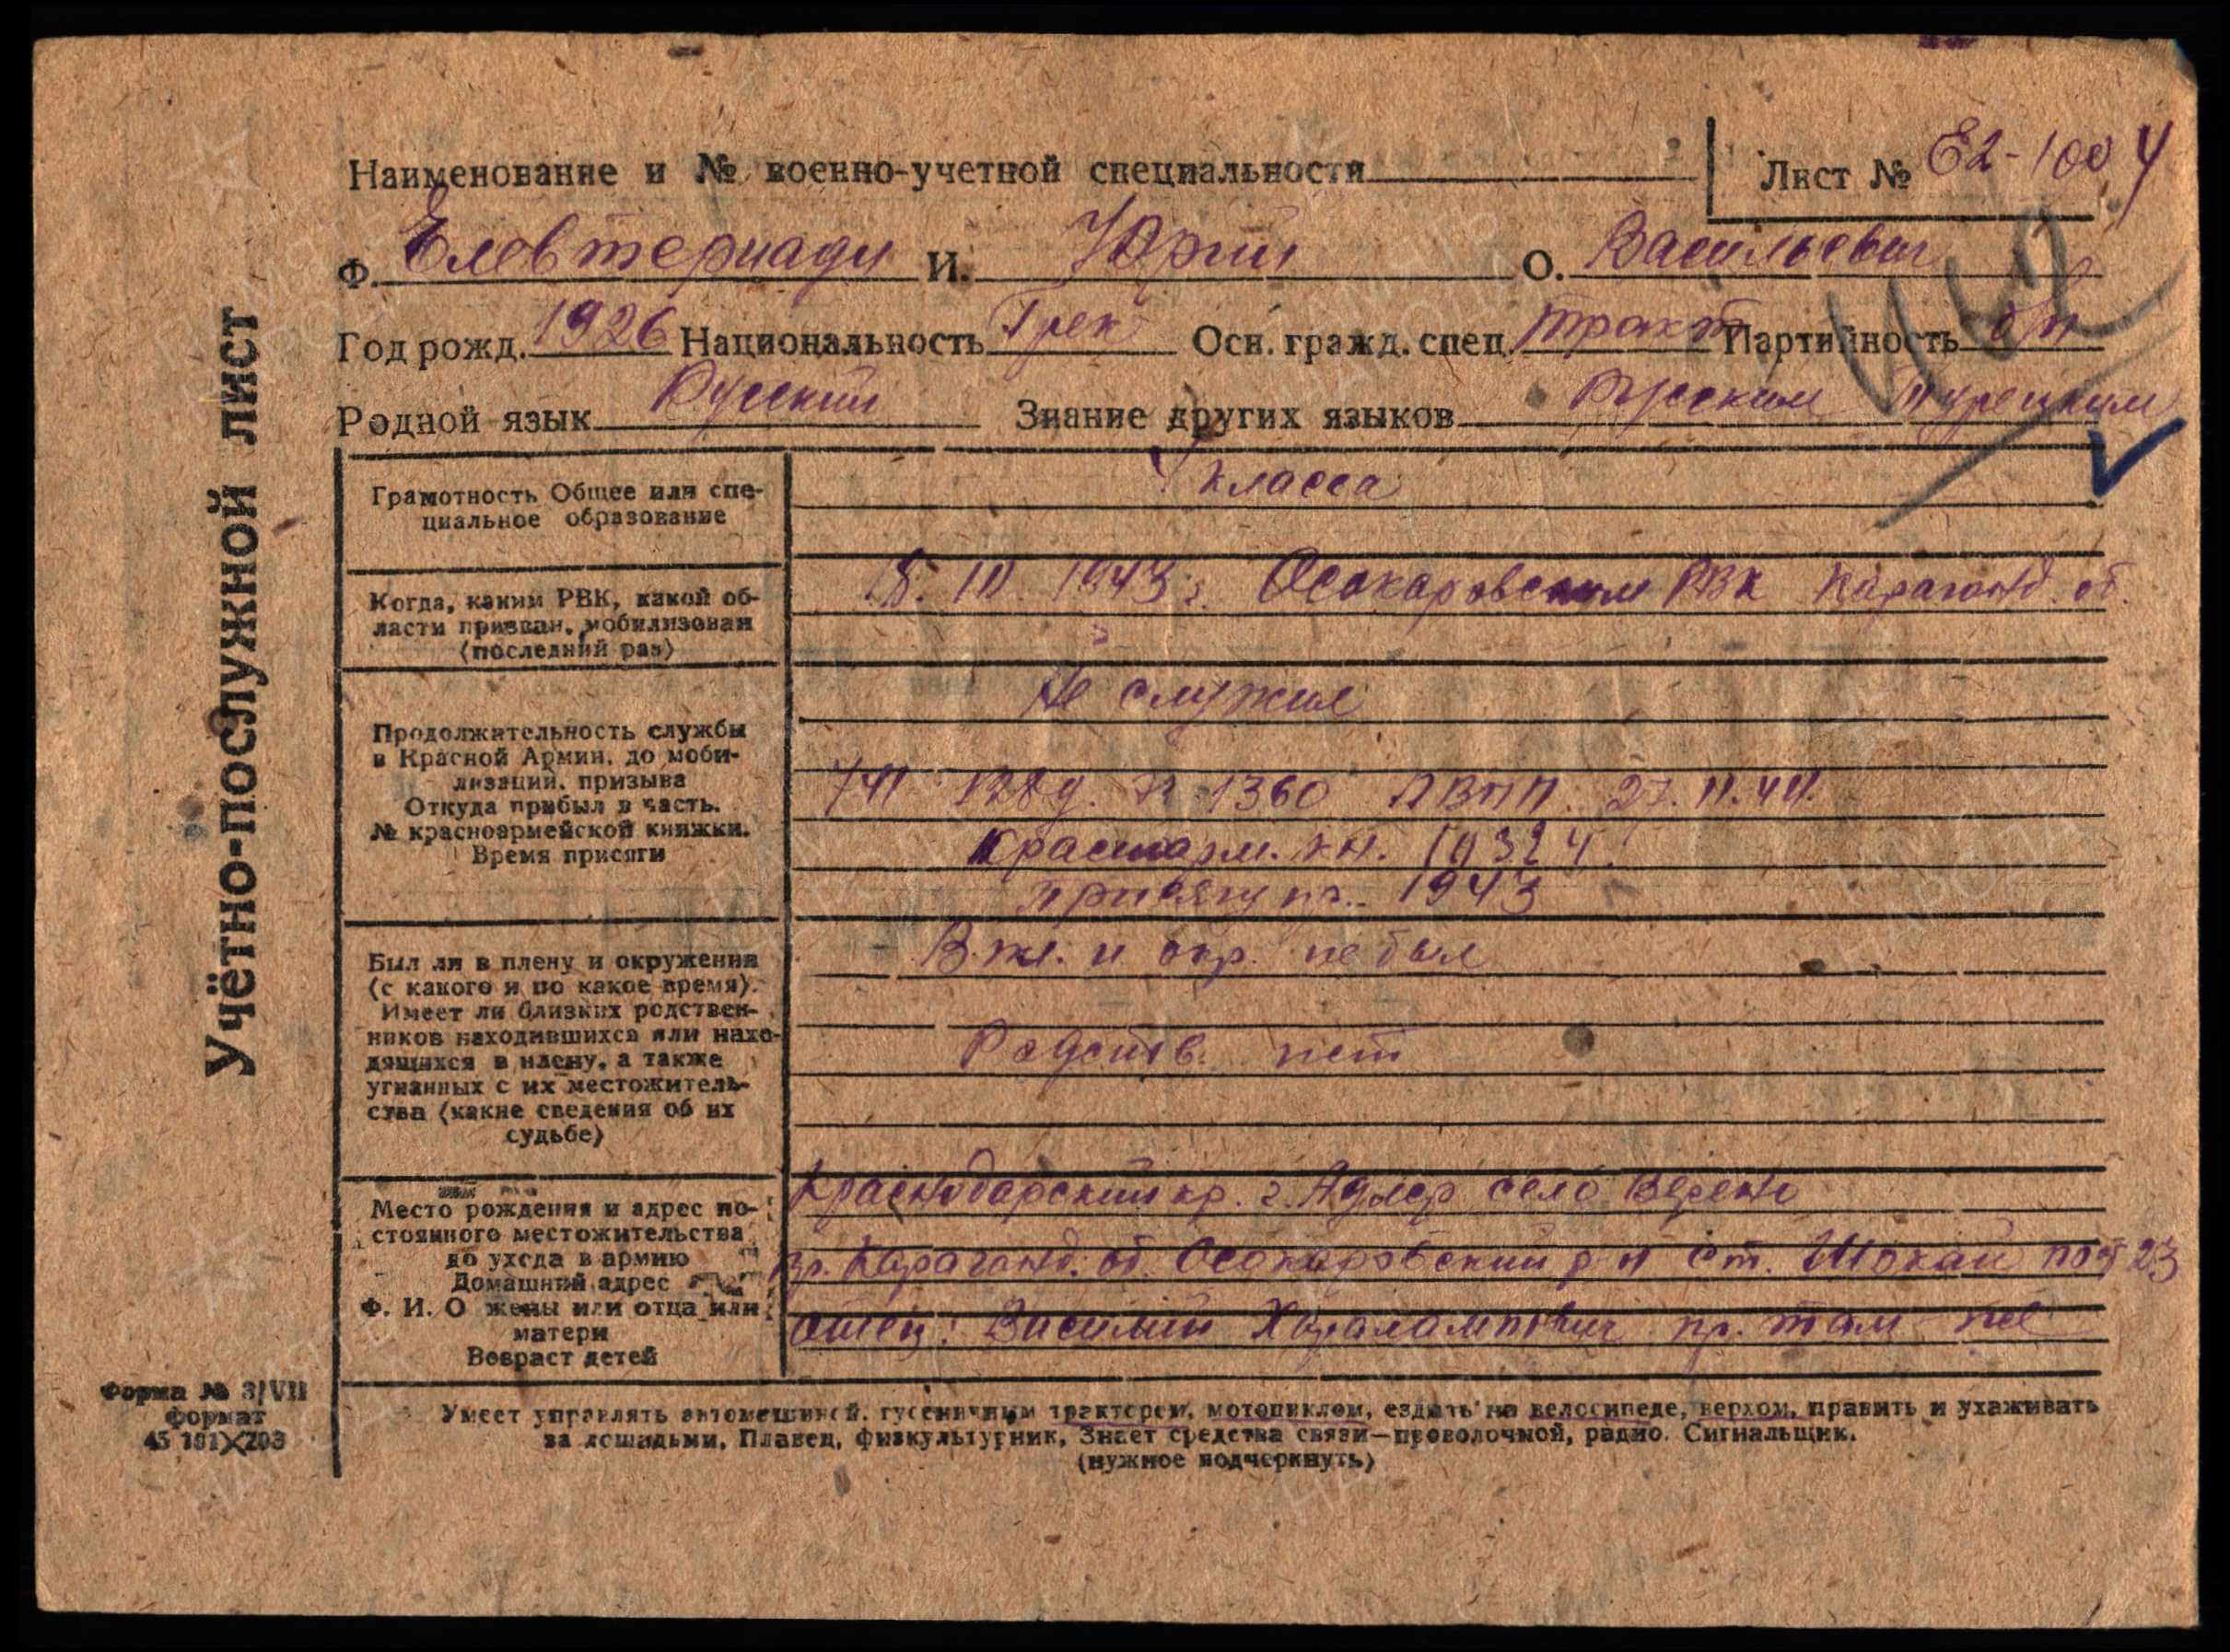 Учётно-послужной лист
Наименование и № военно-учетной специальности
Лист № Е2-100
Ф. Елевтериади И. Юрий О. Васильевич
Год рожд. 1926 Национальность Грек Осн. гражд. спец. тракт Партийность б/п
Родной язык Русский Знание других языков Русским Турецким
Грамотность Общее или спе-
циальное образование
класса
Когда, каким РВК, какой об-
ласти призван, мобилизован
(последний раз)
1943 г. Осакаровским РВК Караганд. об.
Продолжительность службы
в Красной Армии, до моби-
лизации, призыва
Откуда прибыл в часть.
№ красноармейской книжки.
Время присяги
Не служил
1360 27.11.44.
красноарм. кн.
присягу пр. 1943
Был ли в плену и окружении
(с какого и по какое время).
Имеет ли близких родствен-
ников находившихся или нахо-
дящихся в плену, а также
угнанных с их местожитель-
ства (какие сведения об их
судьбе)
В пл. и окр. не был
Родств. нет
Место рождения и адрес по-
стоянного местожительства
до ухода в армию
Домашний адрес
Ф. И. О жены или отца или
матери
Возраст детей
Краснодарский кр. г. Адлер село
пр. Караганд. об. Осокаровский р-н ст. Шокай пос 23
отец: Василий Харалампович пр. там же
Умеет управлять автомашиной, гусеничным трактором, мотоциклом, ездить на велосипеде, верхом, править и ухаживать
за лошадьми, Плавец, физкультурник, Знает средства связи—проволочной, радио. Сигнальщик.
(нужное подчеркнуть)
Форма № 3/VII
формат
45 191×203